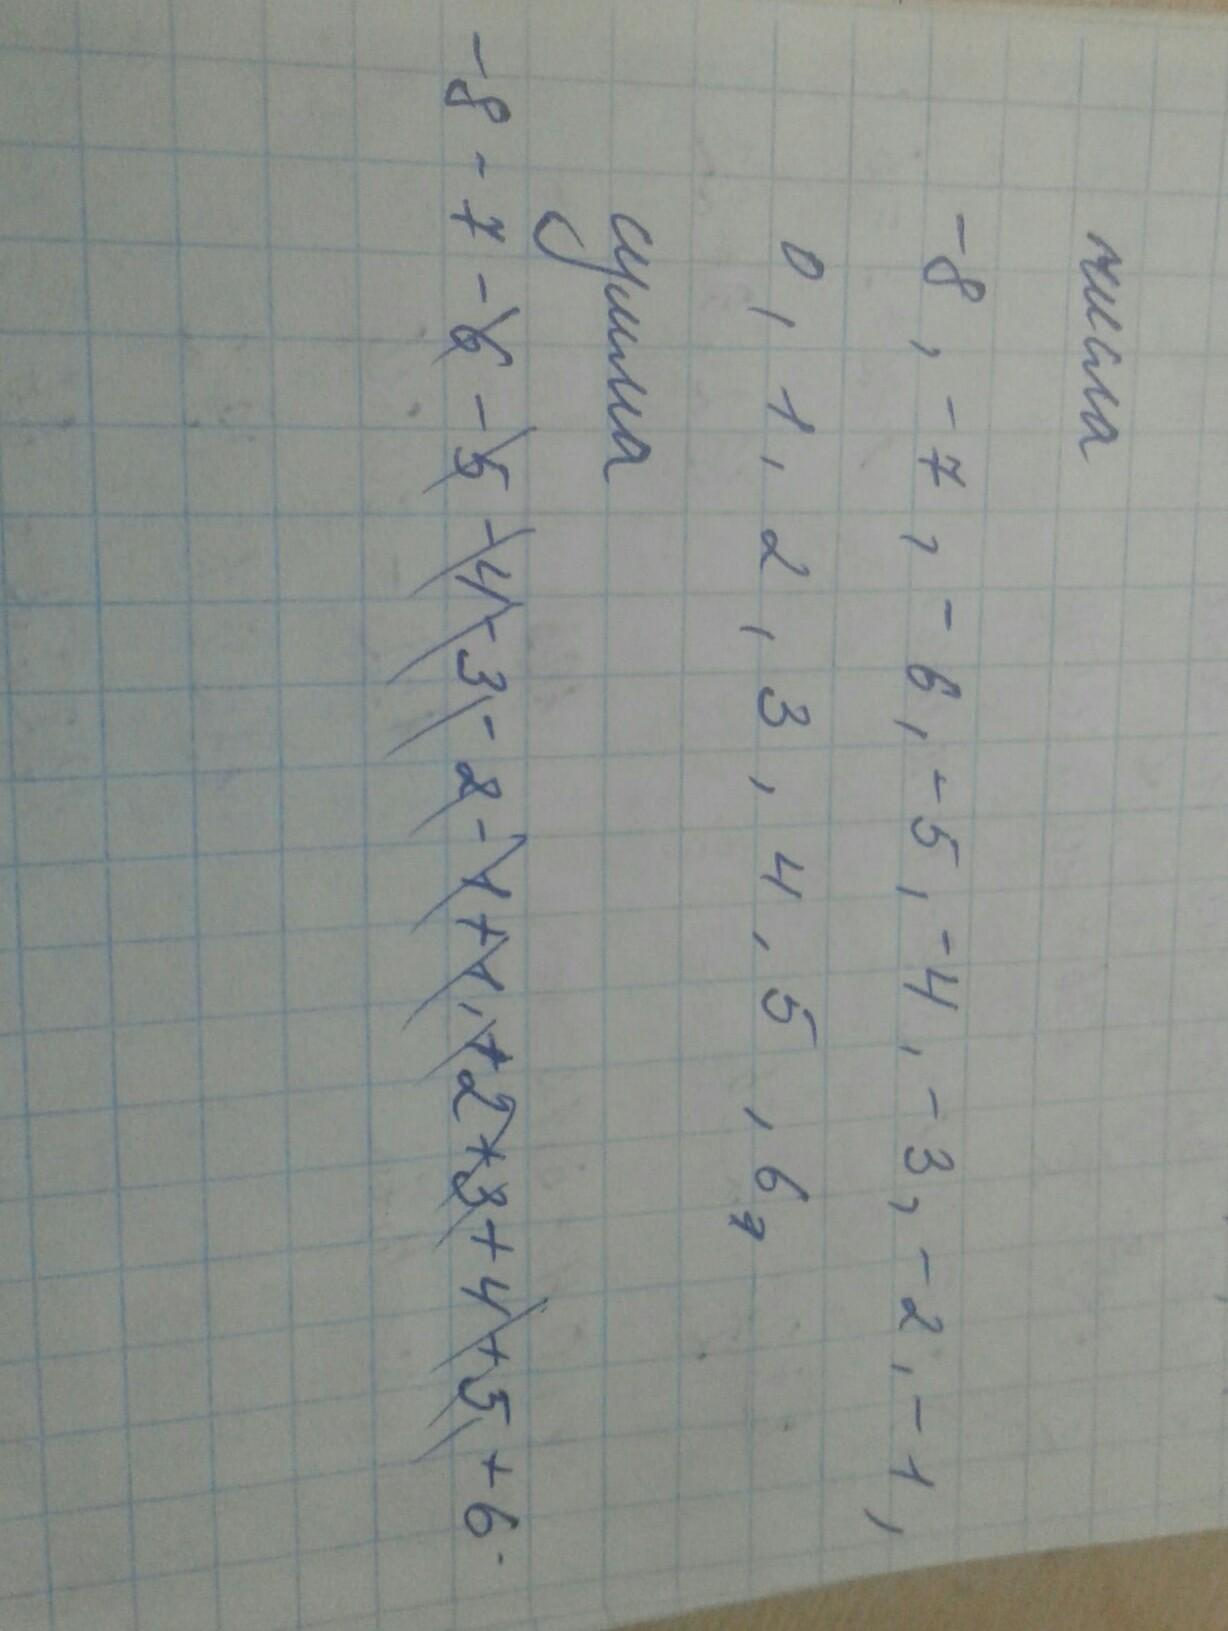 числа
-8, -7, -6, -5, -4, -3, -2, -1,
0, 1, 2, 3, 4, 5, 6,
сумма
-8 - 7 - 6 - 5 - 4 - 3 - 2 - 1 + 1 + 2 + 3 + 4 + 5 + 6.